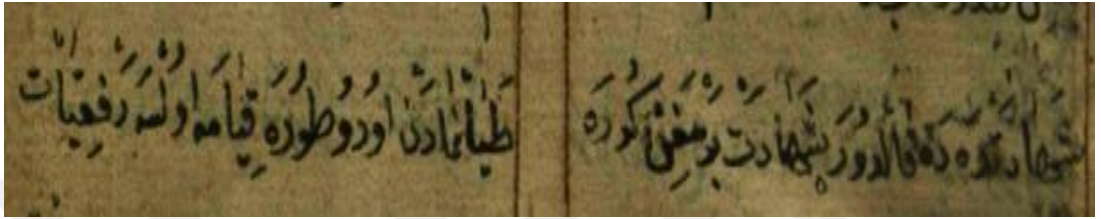 شهادتده ده قالدورر شهادت برمغن كوره طيانمادن اوروطوره قيامه اولسه رفعيات